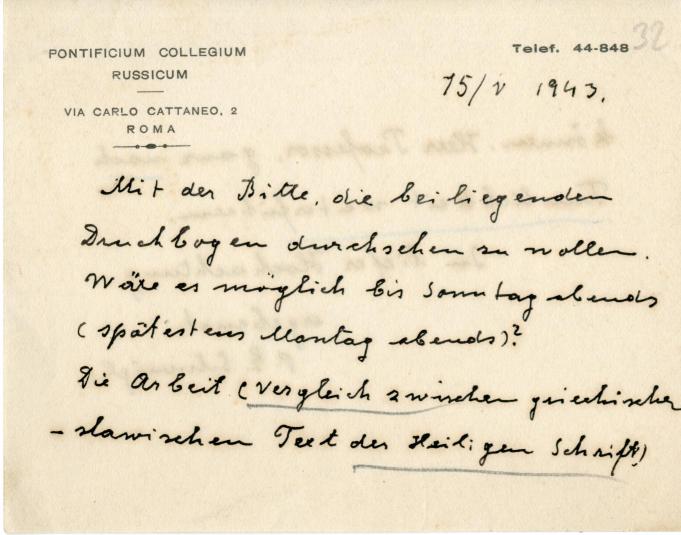 PONTIFICIUM COLLEGIUM
RUSSICUM
VIA CARLO CATTANEO, 2
ROMA
Telef. 44-848
32
15/V 1943.
Mit der Bitte, die beiliegenden
Druckbogen durchsehen zu wollen.
Wäre es möglich bis Sonntag abends
(spätestens Montag abends)?
Die Arbeit (Vergleich zwischen griechischen
- slawischen Text der Heiligen Schrift)